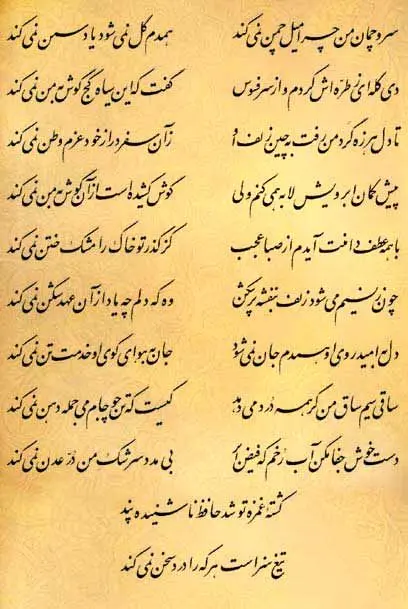 سرو چمان من چرا میل چمن نمی‌کند همدم گل نمی‌شود یاد سمن نمی‌کند
دی گله‌ای ز طره‌اش کردم و از سر فسوس گفت که این سیاه کج گوش به من نمی‌کند
تا دل هرزه گرد من رفت به چین زلف او زآن سفر دراز خود عزم وطن نمی‌کند
پیش کمان ابرویش لابه همی کنم ولی گوش کشیده است از آن گوش به من نمی‌کند
با همه عطف دامنت آیدم از صبا عجب کز گذر تو خاک را مشک ختن نمی‌کند
چون ز نسیم می‌شود زلف بنفشه پرشکن وه که دلم چه یاد از آن عهدشکن نمی‌کند
دل به امید روی او همدم جان نمی‌شود جان به هوای کوی او خدمت تن نمی‌کند
ساقی سیم ساق من گر همه درد می‌دهد کیست که تن چو جام می جمله دهن نمی‌کند
دستخوش جفا مکن آب رخم که فیض ابر بی مدد سرشک من درّ عدن نمی‌کند
کشتهٔ غمزه تو شد حافظ ناشنیده پند
تیغ سزاست هر که را درد سخن نمی‌کند